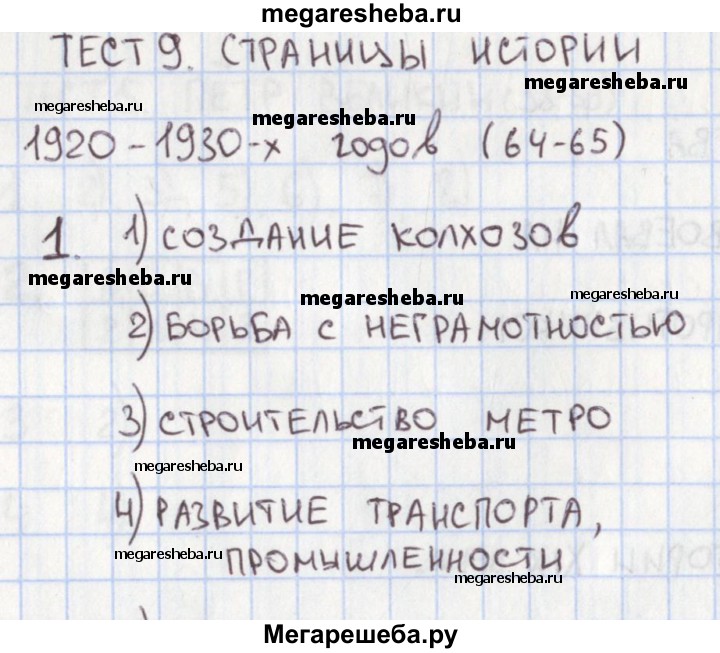 megaresheba.ru
ТЕСТ 9. СТРАНИЦЫ ИСТОРИИ
megaresheba.ru
megaresheba.ru
megaresheba.ru
1920-1930-х годов (64-65)
1. 1) СОЗДАНИЕ КОЛХОЗОВ
megaresheba.ru
megaresheba.ru
megaresheba.ru
2) БОРЬБА С НЕГРАМОТНОСТЬЮ
3) СТРОИТЕЛЬСТВО МЕТРО
megaresheba.ru
megaresheba.ru
4) РАЗВИТИЕ ТРАНСПОРТА,
megaresheba.ru
ПРОМЫШЛЕННОСТИ
megaresheba.ru
Мегарешеба.ру